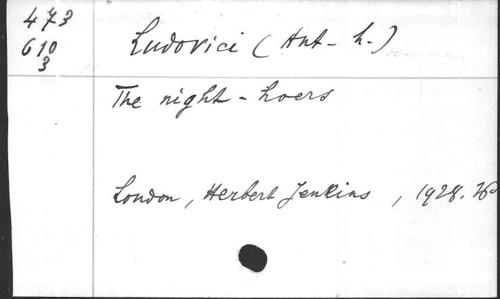 473
610
3
Ludovici (Ant- h.)
The night-hoers
London, Herbert Jenkins, 1928.